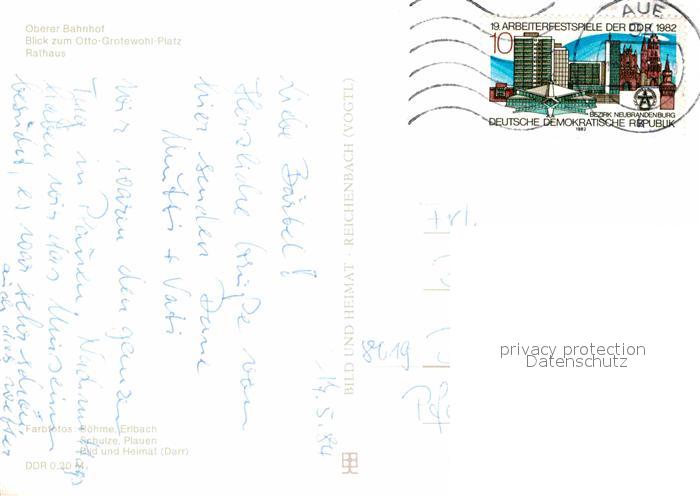 Oberer Bahnhof
Blick zum Otto-Grotewohl-Platz
Rathaus
AUE
19. ARBEITERFESTSPIELE DER DDR 1982
10
BEZIRK NEUBRANDENBURG
DEUTSCHE DEMOKRATISCHE REPUBLIK
1982
14.5.84
Liebe Bärbel!
Herzliche Grüße von
hier senden Deine
Mutti + Vati
Wir waren den ganzen
Tag in Plauen. Nachmittags
haben wir das Museum
besucht, es war sehr schön
auch das Wetter
BILD UND HEIMAT · REICHENBACH (VOGTL)
8619
privacy protection
Datenschutz
Farbfotos: Böhme, Erlbach
Schulze, Plauen
Bild und Heimat (Darr)
DDR 0,20 M